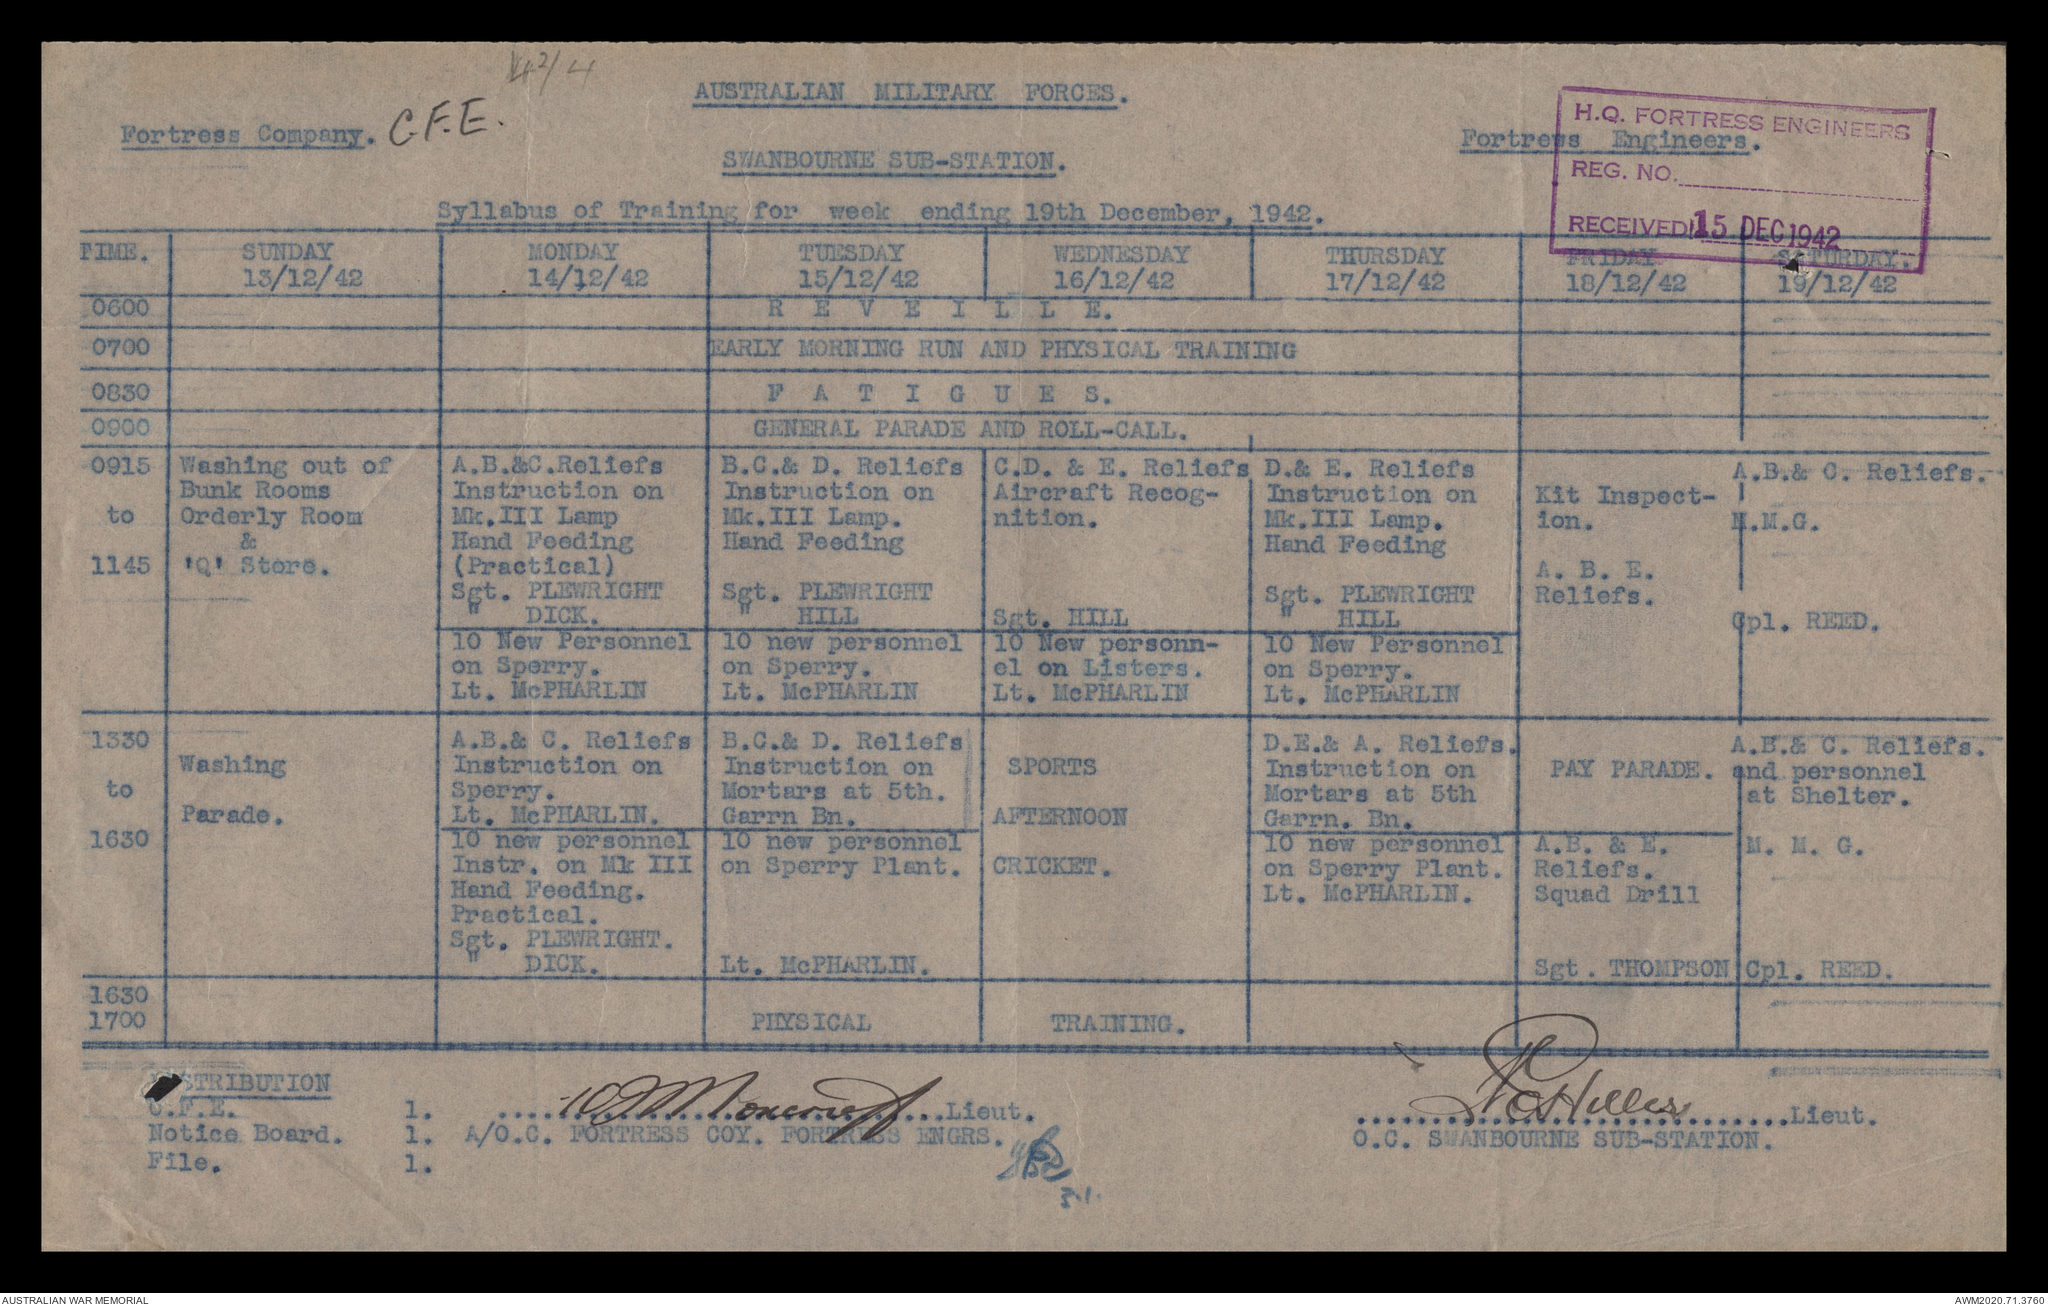 4²/4
AUSTRALIAN MILITARY FORCES.
Fortress Company. C.F.E.
Fortress Engineers.
SWANBOURNE SUB-STATION.
H.Q. FORTRESS ENGINEERS
REG. NO.
RECEIVED 15 DEC 1942
Syllabus of Training for week ending 19th December, 1942.
TIME. SUNDAY MONDAY TUESDAY WEDNESDAY THURSDAY FRIDAY SATURDAY.
13/12/42 14/12/42 15/12/42 16/12/42 17/12/42 18/12/42 19/12/42
0600 R E V E I L L E.
0700 EARLY MORNING RUN AND PHYSICAL TRAINING
0830 F A T I G U E S.
0900 GENERAL PARADE AND ROLL-CALL.
0915
to
1145
Washing out of
Bunk Rooms
Orderly Room
&
'Q' Store.
A.B.&C.Reliefs
Instruction on
Mk.III Lamp
Hand Feeding
(Practical)
Sgt. PLEWRIGHT
" DICK.
10 New Personnel
on Sperry.
Lt. McPHARLIN
B.C.& D. Reliefs
Instruction on
Mk.III Lamp.
Hand Feeding
Sgt. PLEWRIGHT
" HILL
10 new personnel
on Sperry.
Lt. McPHARLIN
C.D. & E. Reliefs
Aircraft Recog-
nition.
Sgt. HILL
10 New personn-
el on Listers.
Lt. McPHARLIN
D.& E. Reliefs
Instruction on
Mk.III Lamp.
Hand Feeding
Sgt. PLEWRIGHT
" HILL
10 New Personnel
on Sperry.
Lt. McPHARLIN
Kit Inspect-
ion.
A. B. E.
Reliefs.
A.B.& C. Reliefs.
M.M.G.
Cpl. REED.
1330
to
1630
Washing
Parade.
A.B.& C. Reliefs
Instruction on
Sperry.
Lt. McPHARLIN.
10 new personnel
Instr. on Mk III
Hand Feeding.
Practical.
Sgt. PLEWRIGHT.
" DICK.
B.C.& D. Reliefs
Instruction on
Mortars at 5th.
Garrn Bn.
10 new personnel
on Sperry Plant.
Lt. McPHARLIN.
SPORTS
AFTERNOON
CRICKET.
D.E.& A. Reliefs.
Instruction on
Mortars at 5th
Garrn. Bn.
10 new personnel
on Sperry Plant.
Lt. McPHARLIN.
PAY PARADE.
A.B. & E.
Reliefs.
Squad Drill
Sgt. THOMPSON
A.B.& C. Reliefs.
and personnel
at Shelter.
M. M. G.
Cpl. REED.
1630
1700 PHYSICAL TRAINING.
DISTRIBUTION
C.F.E. 1.
Notice Board. 1.
File. 1.
Lieut.
A/O.C. FORTRESS COY. FORTRESS ENGRS.
Lieut.
O.C. SWANBOURNE SUB-STATION.
AUSTRALIAN WAR MEMORIAL
AWM2020.71.3760